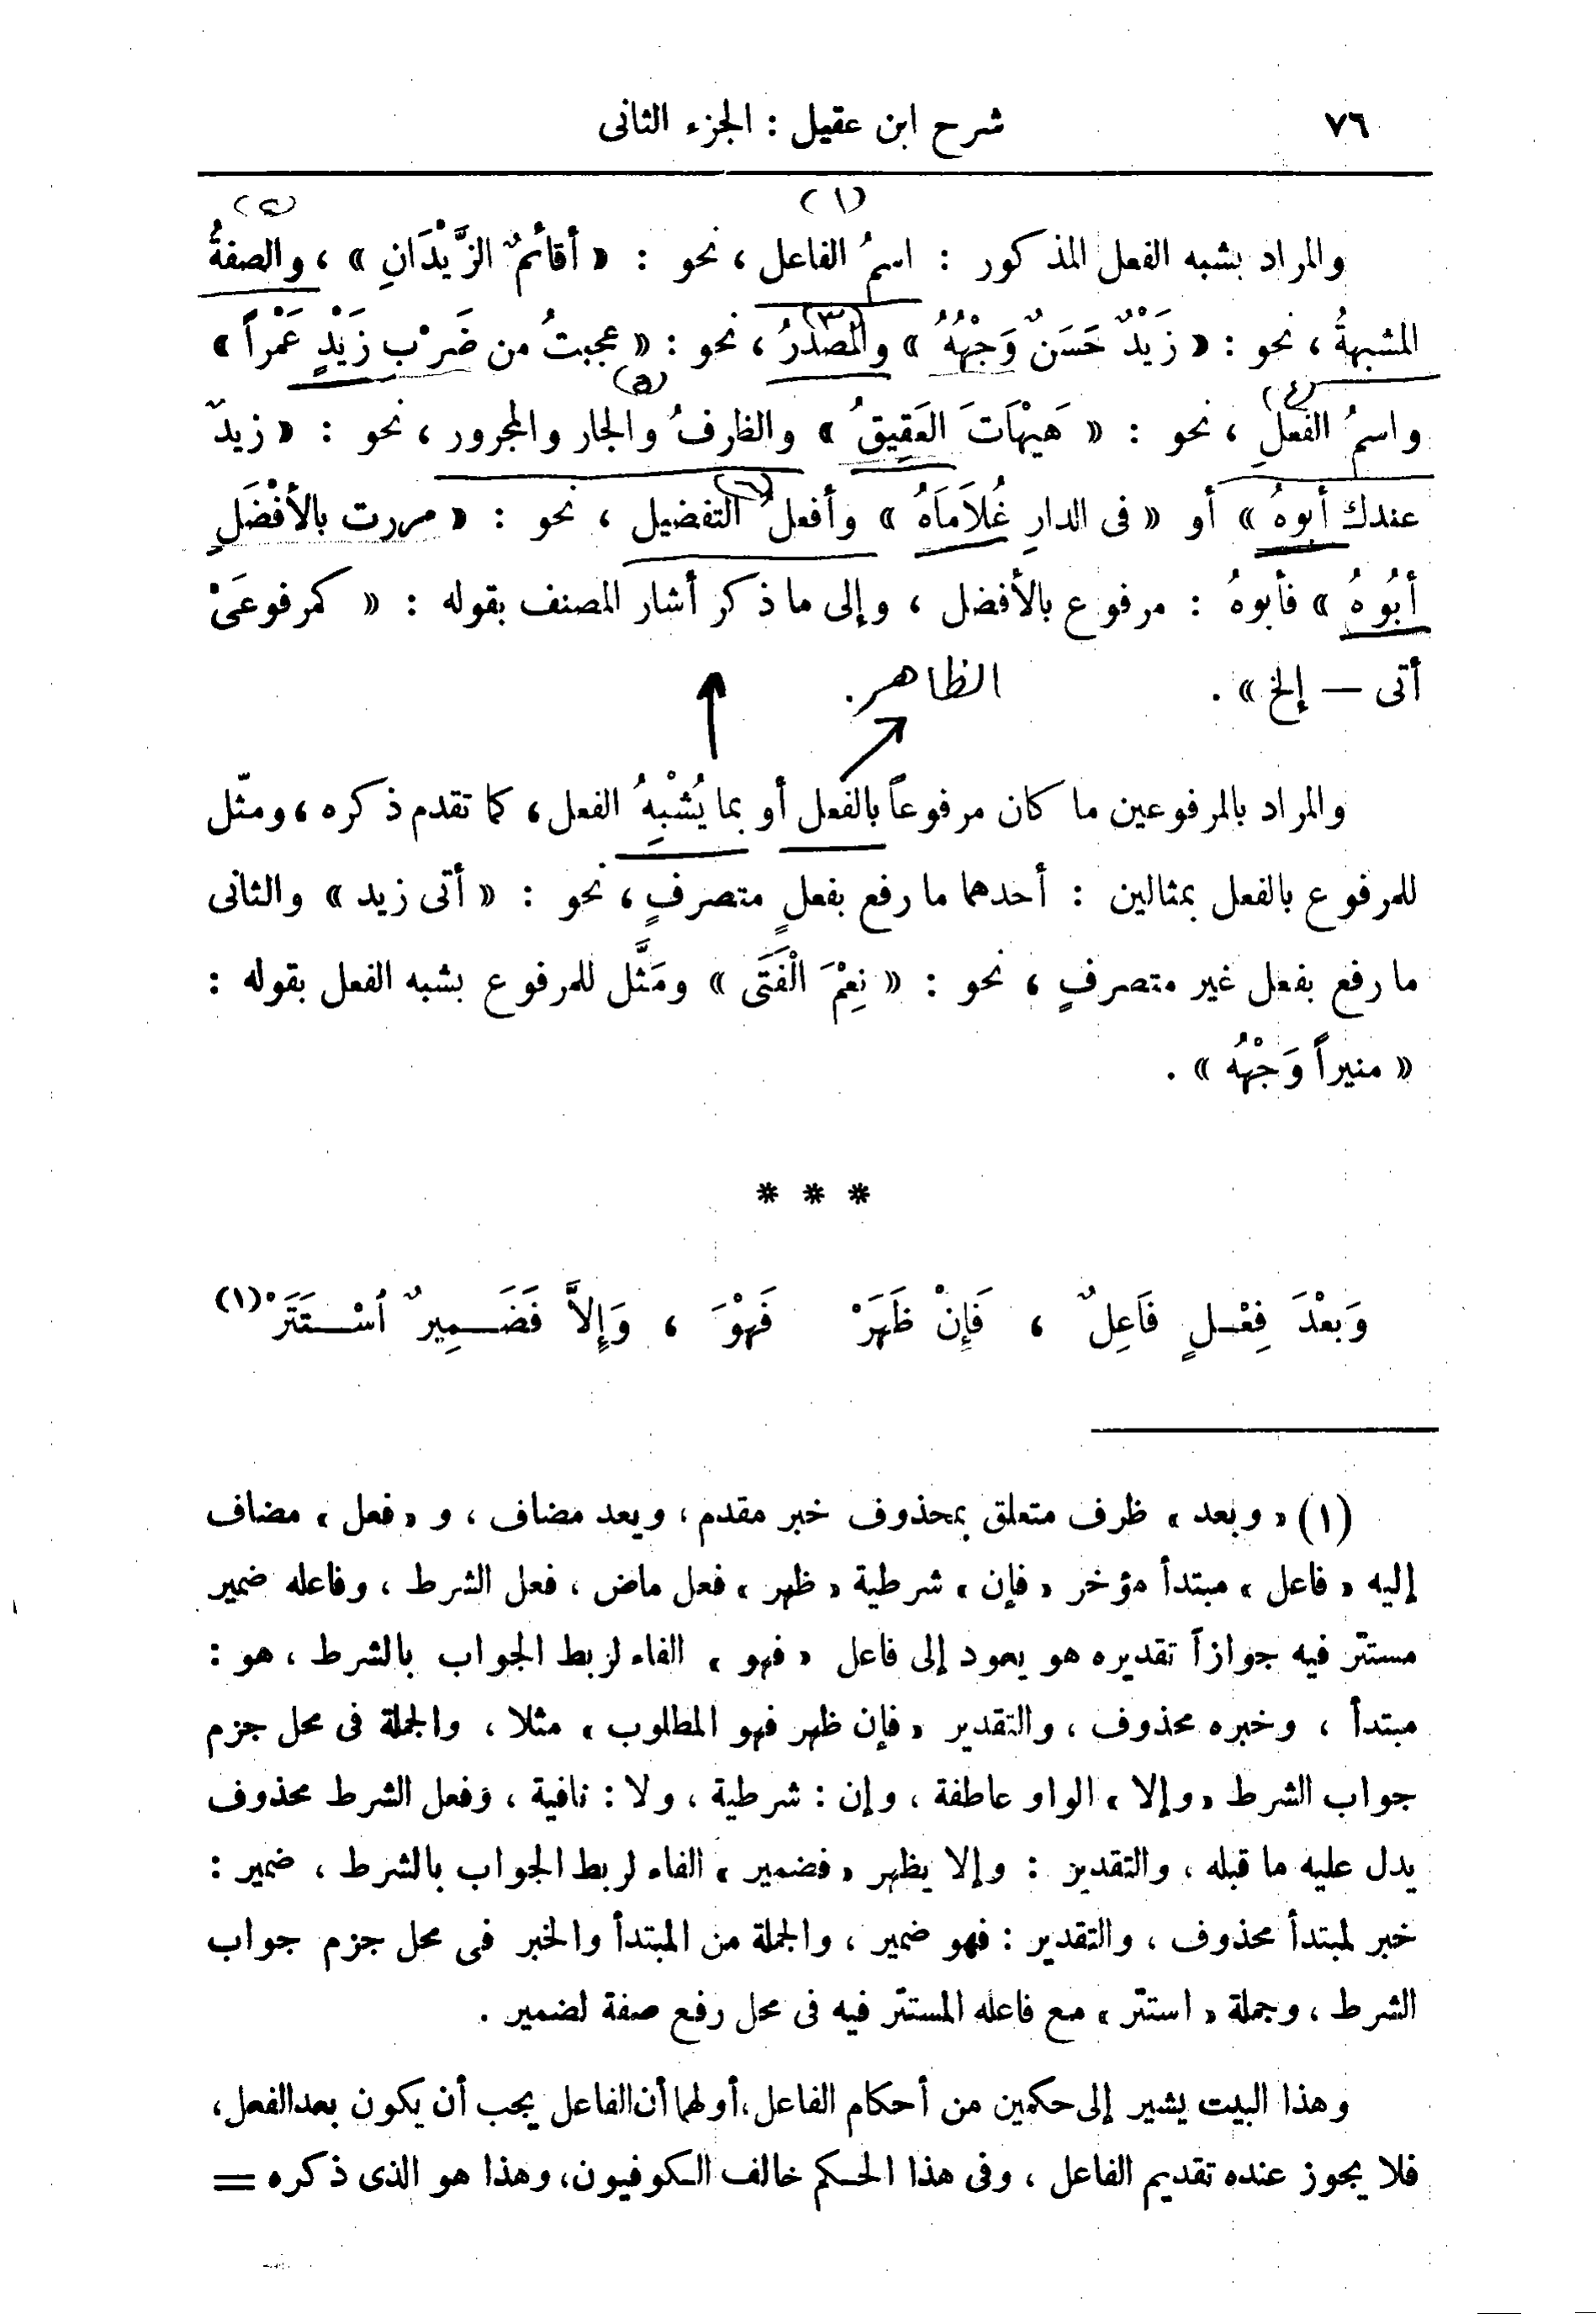 ٧٦
شرح ابن عقيل : الجزء الثانى
(١)
(٢)
والمراد بشبه الفعل المذكور : اسمُ الفاعل ، نحو : « أقائمٌ الزَّيْدَانِ » ، والصفةُ
(٣)
المشبهةُ ، نحو : « زَيْدٌ حَسَنٌ وَجْهُهُ » والمصدرُ ، نحو : « عجبتُ من ضَرْبِ زَيْدٍ عَمْراً »
(٤)
(٥)
واسمُ الفعلِ ، نحو : « هَيْهَاتَ العَقِيقُ » والظرفُ والجار والمجرور ، نحو : « زيدٌ
(٦)
عندك أبوهُ » أو « فى الدارِ غُلاَمَاهُ » وأفعلُ التفضيل ، نحو : « مررت بالأفْضَلِ
أبُوهُ » فأبوهُ : مرفوع بالأفضل ، وإلى ما ذكر أشار المصنف بقوله : « كمرفوعَىْ
أتى — إلخ » .
الظاهر .
والمراد بالمرفوعين ما كان مرفوعاً بالفعل أو بما يُشْبِهُ الفعل ، كما تقدم ذكره ، ومثّل
للمرفوع بالفعل بمثالين : أحدهما ما رفع بفعلٍ متصرفٍ ، نحو : « أتى زيد » والثانى
ما رفع بفعل غير متصرفٍ ، نحو : « نِعْمَ الْفَتَى » ومَثَّل للمرفوع بشبه الفعل بقوله :
« منيراً وَجْهُهُ » .
* * *
وَبَعْدَ فِعْلٍ فَاعِلٌ ، فَإِنْ ظَهَرْ فَهْوَ ، وَإِلاَّ فَضَمِيرٌ اسْتَتَرْ (١)
(١) « وبعد » ظرف متعلق بمحذوف خبر مقدم ، وبعد مضاف ، و « فعل » مضاف
إليه « فاعل » مبتدأ مؤخر « فإن » شرطية « ظهر » فعل ماض ، فعل الشرط ، وفاعله ضمير
مستتر فيه جوازاً تقديره هو يعود إلى فاعل « فهو » الفاء لربط الجواب بالشرط ، هو :
مبتدأ ، وخبره محذوف ، والتقدير « فإن ظهر فهو المطلوب » مثلا ، والجملة فى محل جزم
جواب الشرط « وإلا » الواو عاطفة ، وإن : شرطية ، ولا : نافية ، وفعل الشرط محذوف
يدل عليه ما قبله ، والتقدير : وإلا يظهر « فضمير » الفاء لربط الجواب بالشرط ، ضمير :
خبر لمبتدأ محذوف ، والتقدير : فهو ضمير ، والجملة من المبتدأ والخبر فى محل جزم جواب
الشرط ، وجملة « استتر » مع فاعله المستتر فيه فى محل رفع صفة لضمير .
وهذا البيت يشير إلى حكمين من أحكام الفاعل ، أولهما أن الفاعل يجب أن يكون بعد الفعل ،
فلا يجوز عنده تقديم الفاعل ، وفى هذا الحكم خالف الكوفيون ، وهذا هو الذى ذكره =